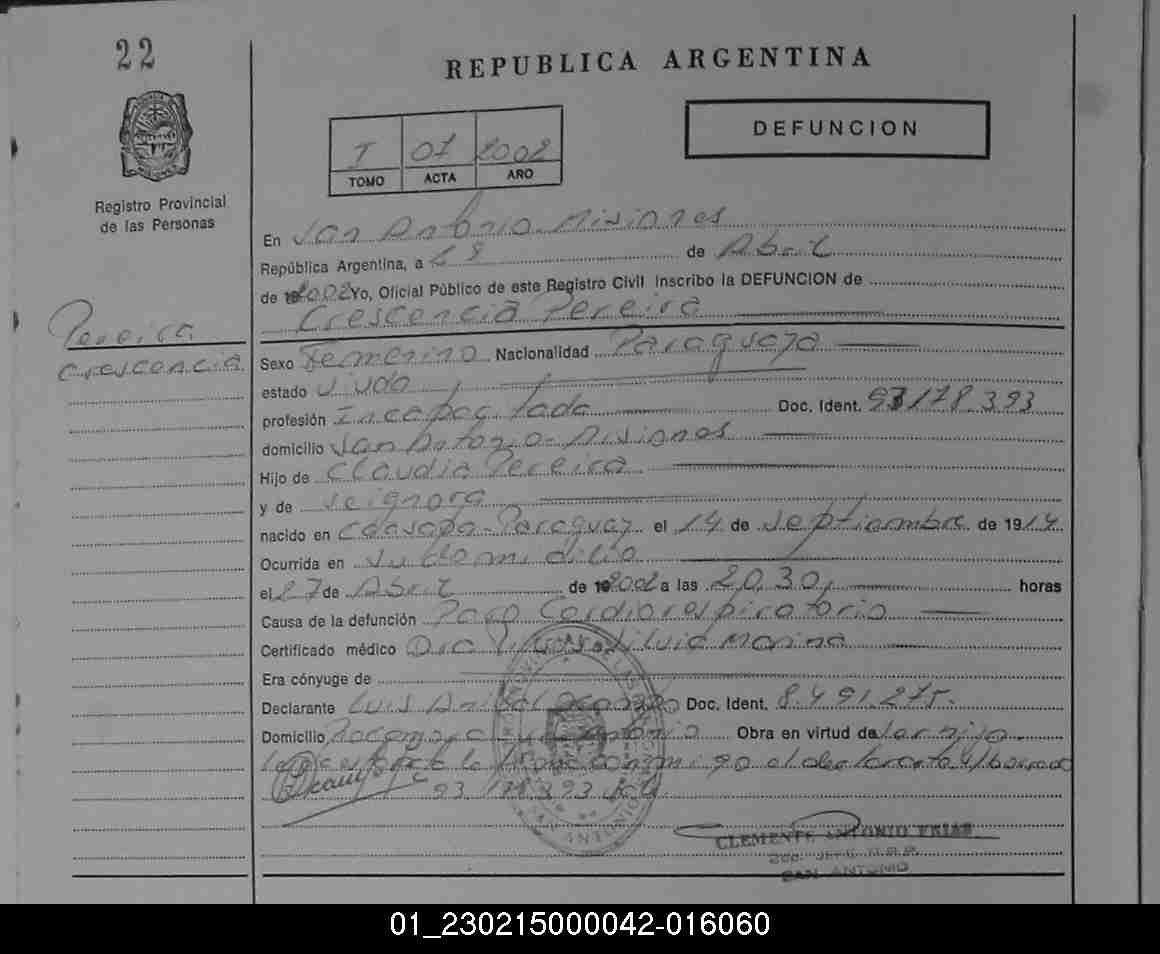 22
REPUBLICA ARGENTINA
DEFUNCION
I 07 2002
TOMO ACTA AÑO
Registro Provincial
de las Personas
Pereira
Crescencia
En San Antonio. Misiones
República Argentina, a 28 de Abril
de 2002 Yo, Oficial Público de este Registro Civil Inscribo la DEFUNCION de
Crescencia Pereira
Sexo Femenino Nacionalidad Paraguaya
estado Viuda
profesión Incapacitada Doc. Ident. 93.178.393
domicilio San Antonio - Misiones
Hijo de Claudia Pereira
y de se ignora
nacido en Caasapa - Paraguay el 14 de Septiembre de 1914
Ocurrida en Su domicilio
el 27 de Abril de 2002 a las 20,30, horas
Causa de la defunción Paro Cardiorespiratorio
Certificado médico Dra Silvia Marina
Era cónyuge de
Declarante Luis Anibal Doc. Ident. 8.491.275.
Domicilio San Antonio Obra en virtud de ser hijo.
la firma conmigo el declarante
93.178.393
CLEMENTE ANTONIO FRIAS
SAN ANTONIO
01_230215000042-016060